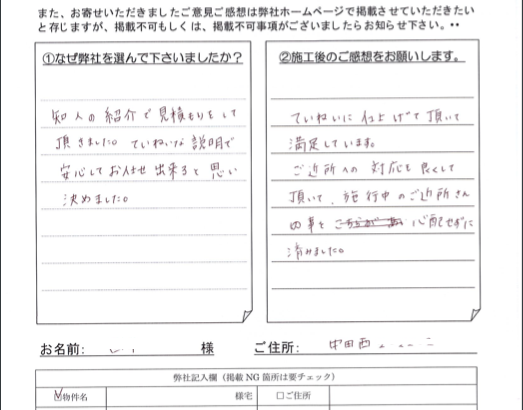 また、お寄せいただきましたご意見ご感想は弊社ホームページで掲載させていただきたい
と存じますが、掲載不可もしくは、掲載不可事項がございましたらお知らせ下さい。••
①なぜ弊社を選んで下さいましたか?
知人の紹介で見積もりをして
頂きました。ていねいな説明で
安心してお任せ出来ると思い
決めました。
②施工後のご感想をお願いします。
ていねいに仕上げて頂いて
満足しています。
ご近所への対応も良くして
頂いて、施行中のご近所さん
の事を 心配せずに
済みました。
お名前: 様 ご住所:
弊社記入欄(掲載 NG 箇所は要チェック)
☑物件名 様宅 □ご住所